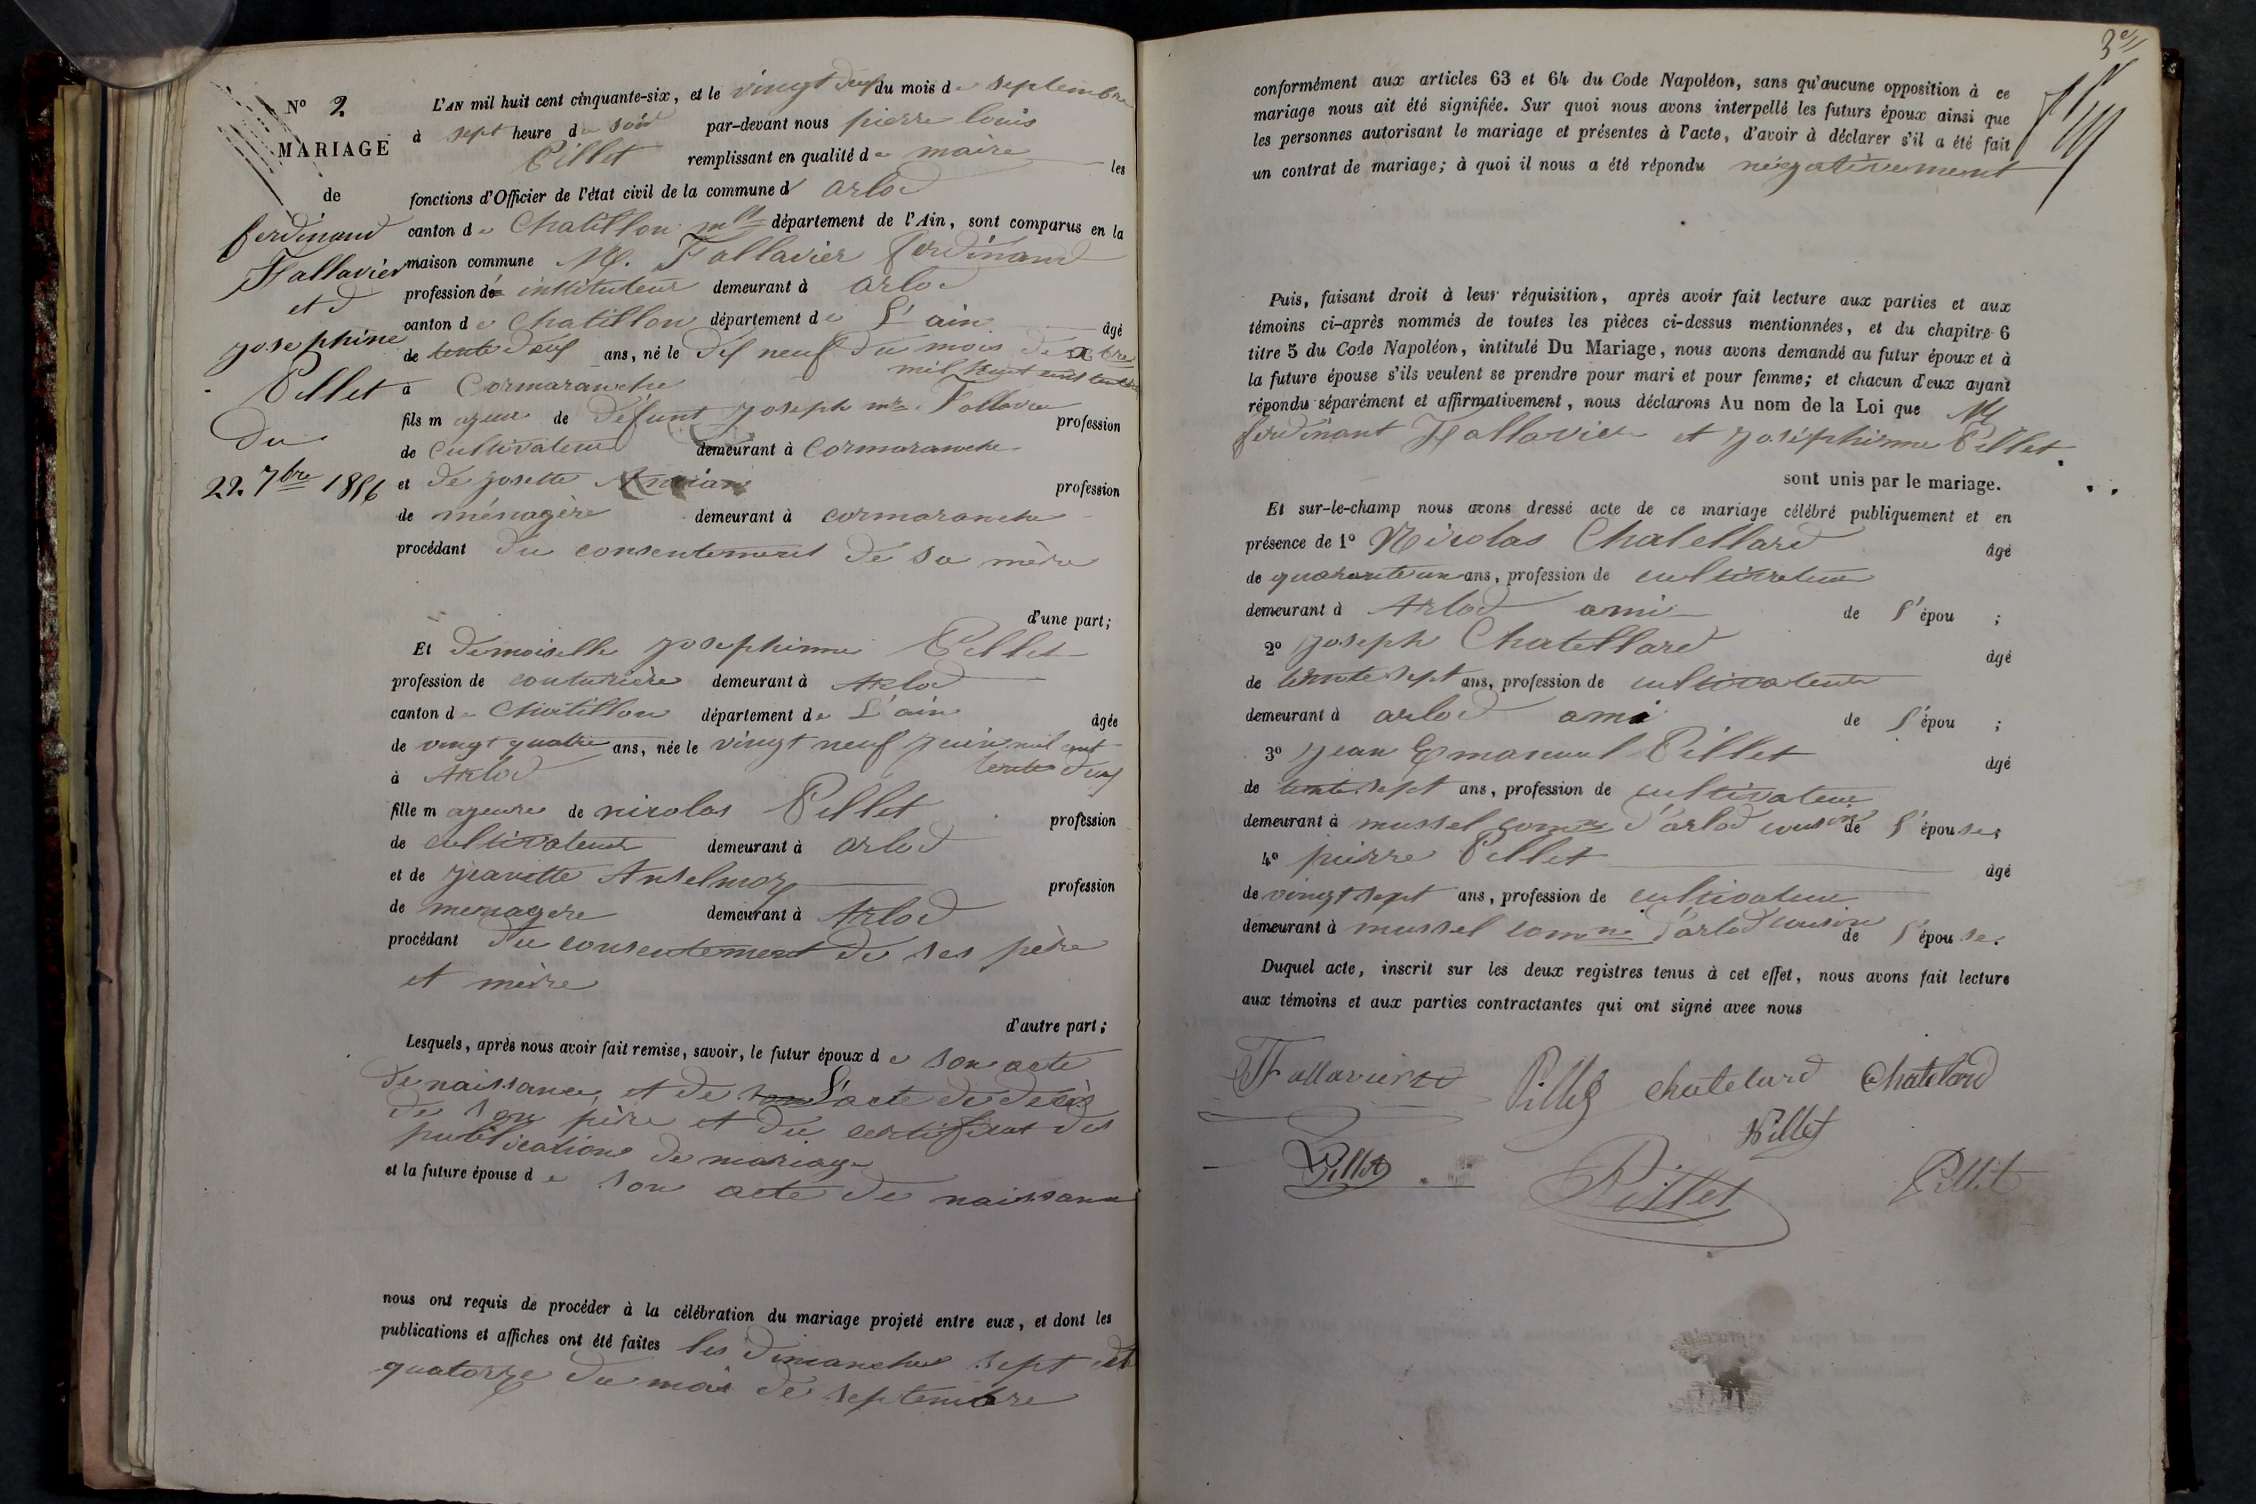 N° 2
MARIAGE
de
ferdinand
Fallavier
et d
josephine
Pillet
du
22 7bre 1856
L'AN mil huit cent cinquante-six, et le vingt deux du mois de septembre
à sept heure du soir par-devant nous pierre louis
Pillet remplissant en qualité de maire les
fonctions d'Officier de l'état civil de la commune d'arlod
canton de Chatillon département de l'Ain, sont comparus en la
maison commune M. Fallavier ferdinand
profession d' instituteur demeurant à arlod
canton de Chatillon département de L'ain âgé
de ans, né le dix neuf du mois de
mil huit cent
à Cormaranche
fils majeur de défunt joseph Fallavier profession
de cultivateur demeurant à Cormaranche
et de josette profession
de ménagère demeurant à cormaranche
procédant du consentement de sa mère
d'une part;
Et demoiselle josephinne Pillet
profession de couturière demeurant à Arlod
canton de Chatillon département de L'ain âgée
de vingt quatre ans, née le vingt neuf juin mil cent
trente deux
à Arlod
fille majeure de nicolas Pillet profession
de cultivateur demeurant à arlod
et de jeanette Anselmoz profession
de menagere demeurant à Arlod
procédant du consentement de ses père
et mère
d'autre part;
Lesquels, après nous avoir fait remise, savoir, le futur époux de son acte
de naissance, et de L'acte de décès
de son père et du certificat des
publications de mariage
et la future épouse de son acte de naissance
nous ont requis de procéder à la célébration du mariage projeté entre eux, et dont les
publications et affiches ont été faites les dimanches sept et
quatorze du mois de septembre
3e
conformément aux articles 63 et 64 du Code Napoléon, sans qu'aucune opposition à ce
mariage nous ait été signifiée. Sur quoi nous avons interpellé les futurs époux ainsi que
les personnes autorisant le mariage et présentes à l'acte, d'avoir à déclarer s'il a été fait
un contrat de mariage; à quoi il nous a été répondu négativement
Puis, faisant droit à leur réquisition, après avoir fait lecture aux parties et aux
témoins ci-après nommés de toutes les pièces ci-dessus mentionnées, et du chapitre 6
titre 5 du Code Napoléon, intitulé Du Mariage, nous avons demandé au futur époux et à
la future épouse s'ils veulent se prendre pour mari et pour femme; et chacun d'eux ayant
répondu séparément et affirmativement, nous déclarons Au nom de la Loi que M
ferdinant Fallavier et joséphinne Pillet
sont unis par le mariage.
Et sur-le-champ nous avons dressé acte de ce mariage célébré publiquement et en
présence de 1° Nicolas Chatellard âgé
de quarante un ans, profession de cultivateur
demeurant à Arlod ami de l'épou ;
2° joseph Chatellard âgé
de trente sept ans, profession de cultivateur
demeurant à arlod ami de l'épou ;
3° jean Emanuel Pillet âgé
de trente sept ans, profession de cultivateur
demeurant à mussel comne d'arlod cousin de l'épouse;
4° pierre Pillet âgé
de vingt sept ans, profession de cultivateur
demeurant à mussel comne d'arlod cousin de l'épouse.
Duquel acte, inscrit sur les deux registres tenus à cet effet, nous avons fait lecture
aux témoins et aux parties contractantes qui ont signé avec nous
Fallavier Pillet chatelard Chatelard
Pillet
Pillet Pillet Pillet